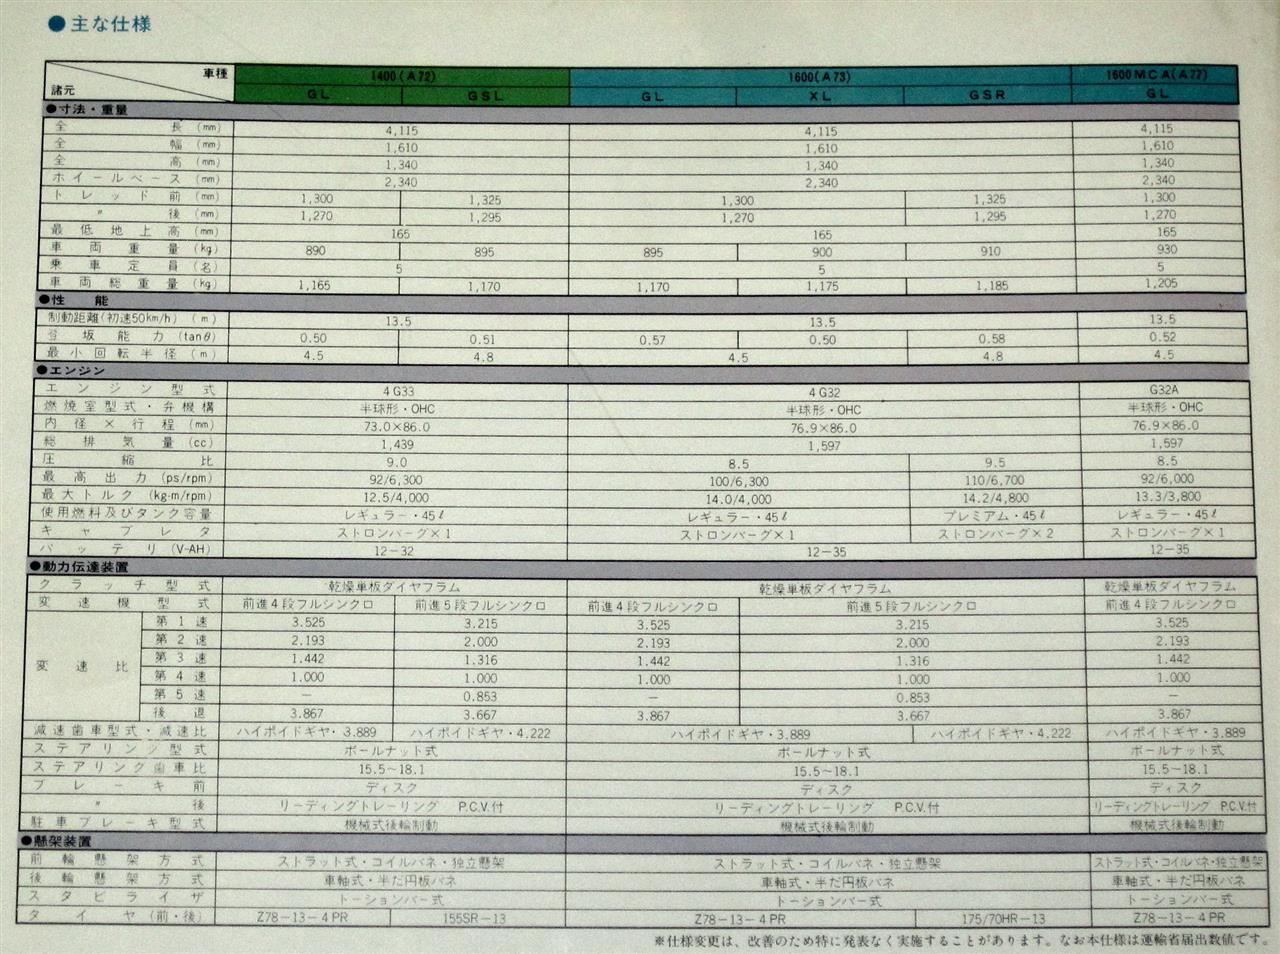 ●主な仕様
車種 1400(A72) 1600(A73) 1600MCA(A77)
諸元 GL GSL GL XL GSR GL
●寸法・重量
全長(mm) 4,115 4,115 4,115
全幅(mm) 1,610 1,610 1,610
全高(mm) 1,340 1,340 1,340
ホイールベース(mm) 2,340 2,340 2,340
トレッド前(mm) 1,300 1,325 1,300 1,325 1,300
〃後(mm) 1,270 1,295 1,270 1,295 1,270
最低地上高(mm) 165 165 165
車両重量(kg) 890 895 895 900 910 930
乗車定員(名) 5 5 5
車両総重量(kg) 1,165 1,170 1,170 1,175 1,185 1,205
●性能
制動距離(初速50km/h)(m) 13.5 13.5 13.5
登坂能力(tanθ) 0.50 0.51 0.57 0.50 0.58 0.52
最小回転半径(m) 4.5 4.8 4.5 4.8 4.5
●エンジン
エンジン型式 4G33 4G32 G32A
燃焼室型式・弁機構 半球形・OHC 半球形・OHC 半球形・OHC
内径×行程(mm) 73.0×86.0 76.9×86.0 76.9×86.0
総排気量(cc) 1,439 1,597 1,597
圧縮比 9.0 8.5 9.5 8.5
最高出力(ps/rpm) 92/6,300 100/6,300 110/6,700 92/6,000
最大トルク(kg-m/rpm) 12.5/4,000 14.0/4,000 14.2/4,800 13.3/3,800
使用燃料及びタンク容量 レギュラー・45ℓ レギュラー・45ℓ プレミアム・45ℓ レギュラー・45ℓ
キャブレタ ストロンバーグ×1 ストロンバーグ×1 ストロンバーグ×2 ストロンバーグ×1
バッテリ(V-AH) 12−32 12−35 12−35
●動力伝達装置
クラッチ型式 乾燥単板ダイヤフラム 乾燥単板ダイヤフラム 乾燥単板ダイヤフラム
変速機型式 前進4段フルシンクロ 前進5段フルシンクロ 前進4段フルシンクロ 前進5段フルシンクロ 前進4段フルシンクロ
変速比 第1速 3.525 3.215 3.525 3.215 3.525
第2速 2.193 2.000 2.193 2.000 2.193
第3速 1.442 1.316 1.442 1.316 1.442
第4速 1.000 1.000 1.000 1.000 1.000
第5速 − 0.853 − 0.853 −
後退 3.867 3.667 3.867 3.667 3.867
減速歯車型式・減速比 ハイポイドギヤ・3.889 ハイポイドギヤ・4.222 ハイポイドギヤ・3.889 ハイポイドギヤ・4.222 ハイポイドギヤ・3.889
ステアリング型式 ボールナット式 ボールナット式 ボールナット式
ステアリング歯車比 15.5~18.1 15.5~18.1 15.5~18.1
ブレーキ前 ディスク ディスク ディスク
〃後 リーディングトレーリング P.C.V.付 リーディングトレーリング P.C.V.付 リーディングトレーリング P.C.V.付
駐車ブレーキ型式 機械式後輪制動 機械式後輪制動 機械式後輪制動
●懸架装置
前輪懸架方式 ストラット式・コイルバネ・独立懸架 ストラット式・コイルバネ・独立懸架 ストラット式・コイルバネ・独立懸架
後輪懸架方式 車軸式・半だ円板バネ 車軸式・半だ円板バネ 車軸式・半だ円板バネ
スタビライザ トーションバー式 トーションバー式 トーションバー式
タイヤ(前・後) Z78−13−4PR 155SR−13 Z78−13−4PR 175/70HR−13 Z78−13−4PR
※仕様変更は、改善のため特に発表なく実施することがあります。なお本仕様は運輸省届出数値です。